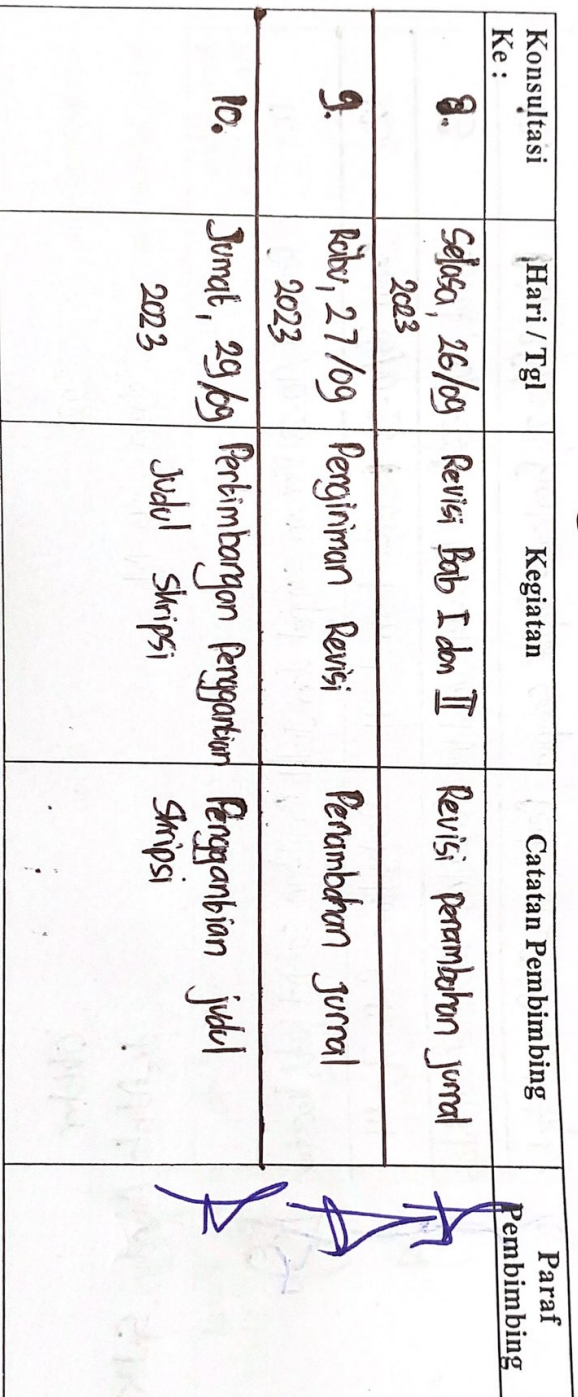 Konsultasi Ke :
Hari / Tgl
Kegiatan
Catatan Pembimbing
Paraf Pembimbing
8.
Selasa, 26/09
2023
Revisi Bab I dan II
Revisi Penambahan jurnal
9.
Rabu, 27/09
2023
Pengiriman Revisi
Penambahan jurnal
10.
Jumat, 29/09
2023
Pertimbangan Penggantian
Judul Skripsi
Penggantian judul
Skripsi